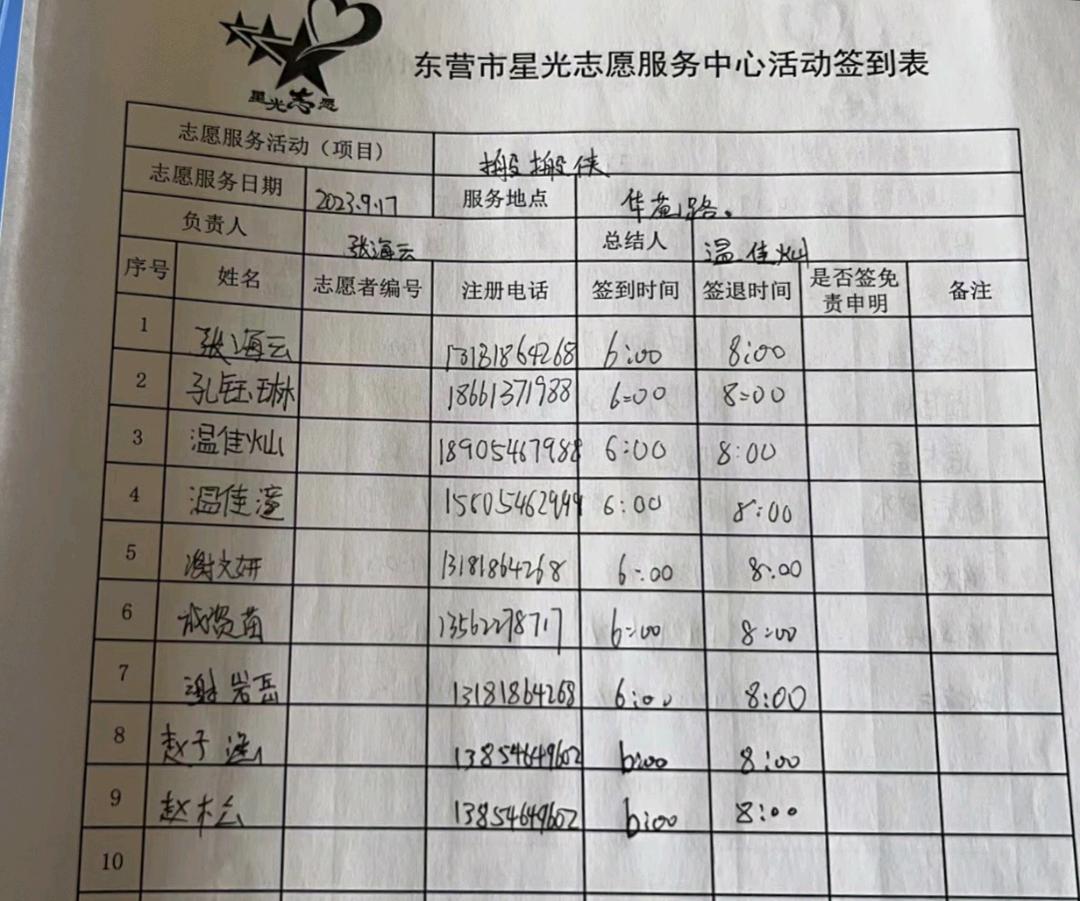 星光志愿
东营市星光志愿服务中心活动签到表
志愿服务活动（项目） 搬搬侠
志愿服务日期 2023.9.17 服务地点 华苑路.
负责人 张海云 总结人 温佳灿
序号 姓名 志愿者编号 注册电话 签到时间 签退时间 是否签免责申明 备注
1 张海云 13181864268 6:00 8:00
2 孔钰琳 18661371988 6:00 8:00
3 温佳灿 18905467988 6:00 8:00
4 温佳潼 6:00 8:00
5 谢文妍 13181864268 6:00 8:00
6 13562278717 6:00 8:00
7 谢岩岳 13181864268 6:00 8:00
8 赵子涵 13854649602 6:00 8:00
9 赵木公 13854649602 6:00 8:00
10